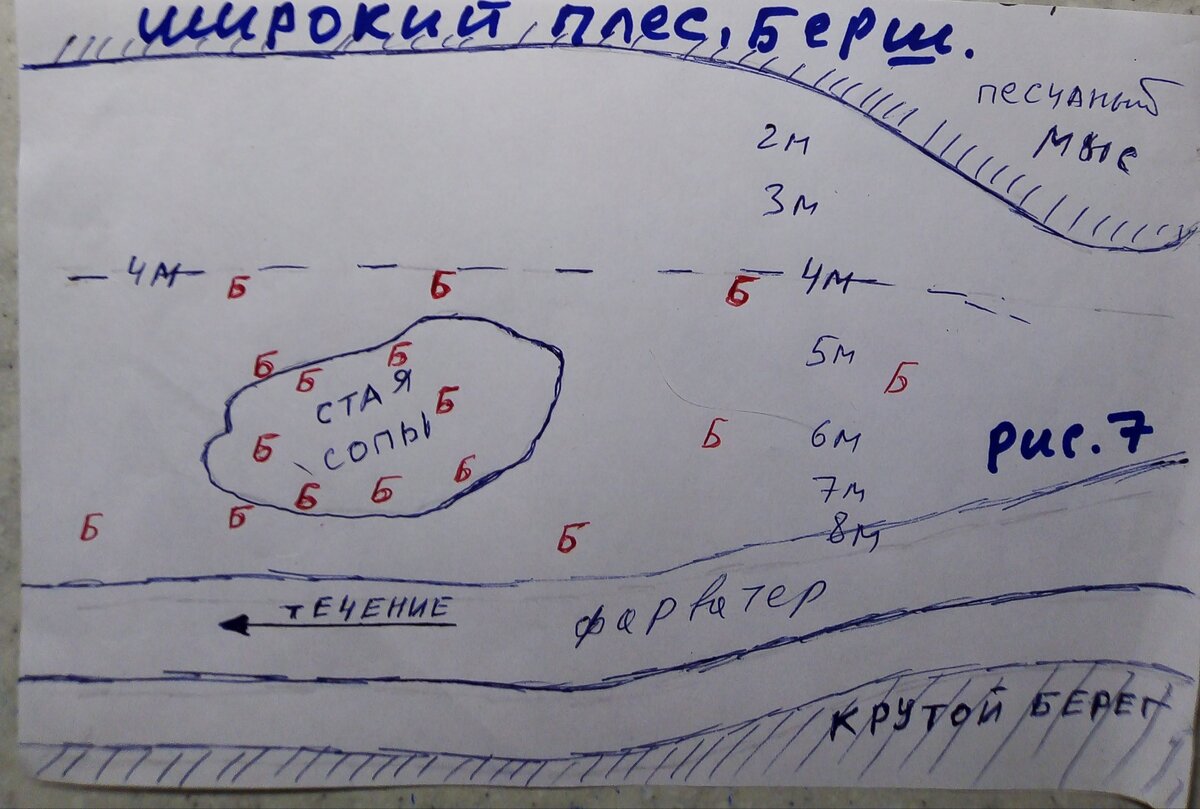 широкий плес, Берш.
песчаный
мыс
2м
3м
4м
4м
Б
Б
Б
5м
Б
Б
Б
Б
СТАЯ
Б
СОПЫ
Б
Б
6м
рис. 7
7м
Б
Б
Б
Б
8м
Б
Б
ТЕЧЕНИЕ
фарватер
КРУТОЙ БЕРЕГ